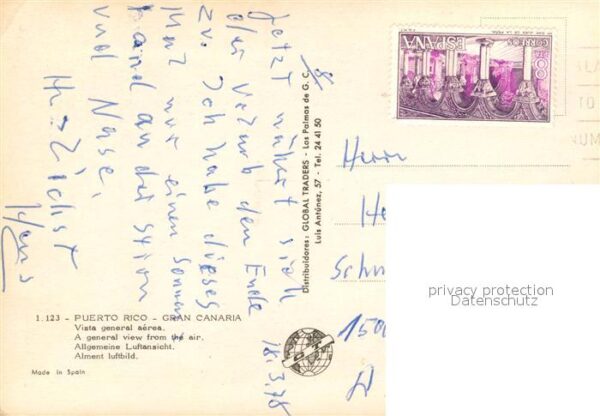 18.3.78
Jetzt nähert sich
der Urlaub dem Ende
zu. Ich habe dieses
Mal nur einen Sonnen
brand an der Stirn
und Nase.
Herzlichst
Hans
1.123 - PUERTO RICO - GRAN CANARIA
Vista general aérea.
A general view from the air.
Allgemeine Luftansicht.
Alment luftbild.
Made in Spain
Distribuidores: GLOBAL TRADERS - Las Palmas de G. C.
Luis Antúnez, 57 - Tel. 24 41 50
ESPAÑA
CORREOS
8
Herrn
He
Schu
privacy protection
Datenschutz